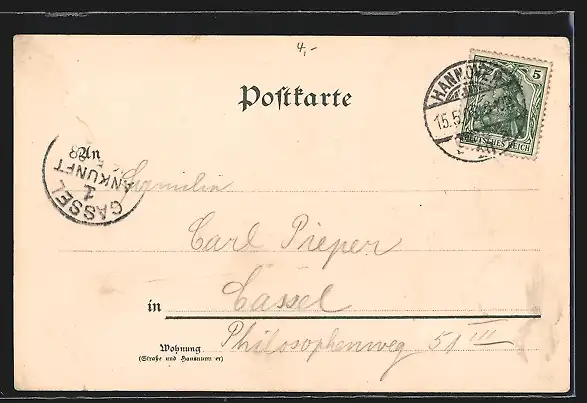 4,-
Postkarte
HANNOVER
15.5
5
DEUTSCHES REICH
An
CASSEL
1
ANKUNFT
Familie
Carl Pieper
in Cassel
Wohnung Philosophenweg 51 III
(Straße und Hausnummer)